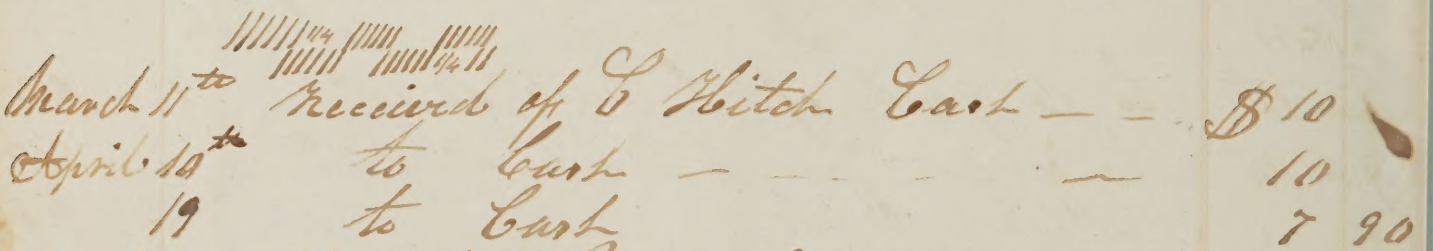 March 11th Received of C Hitch Cash — — $ 10
April 10th to Cash — — — — — 10
19 to Cash 7 90